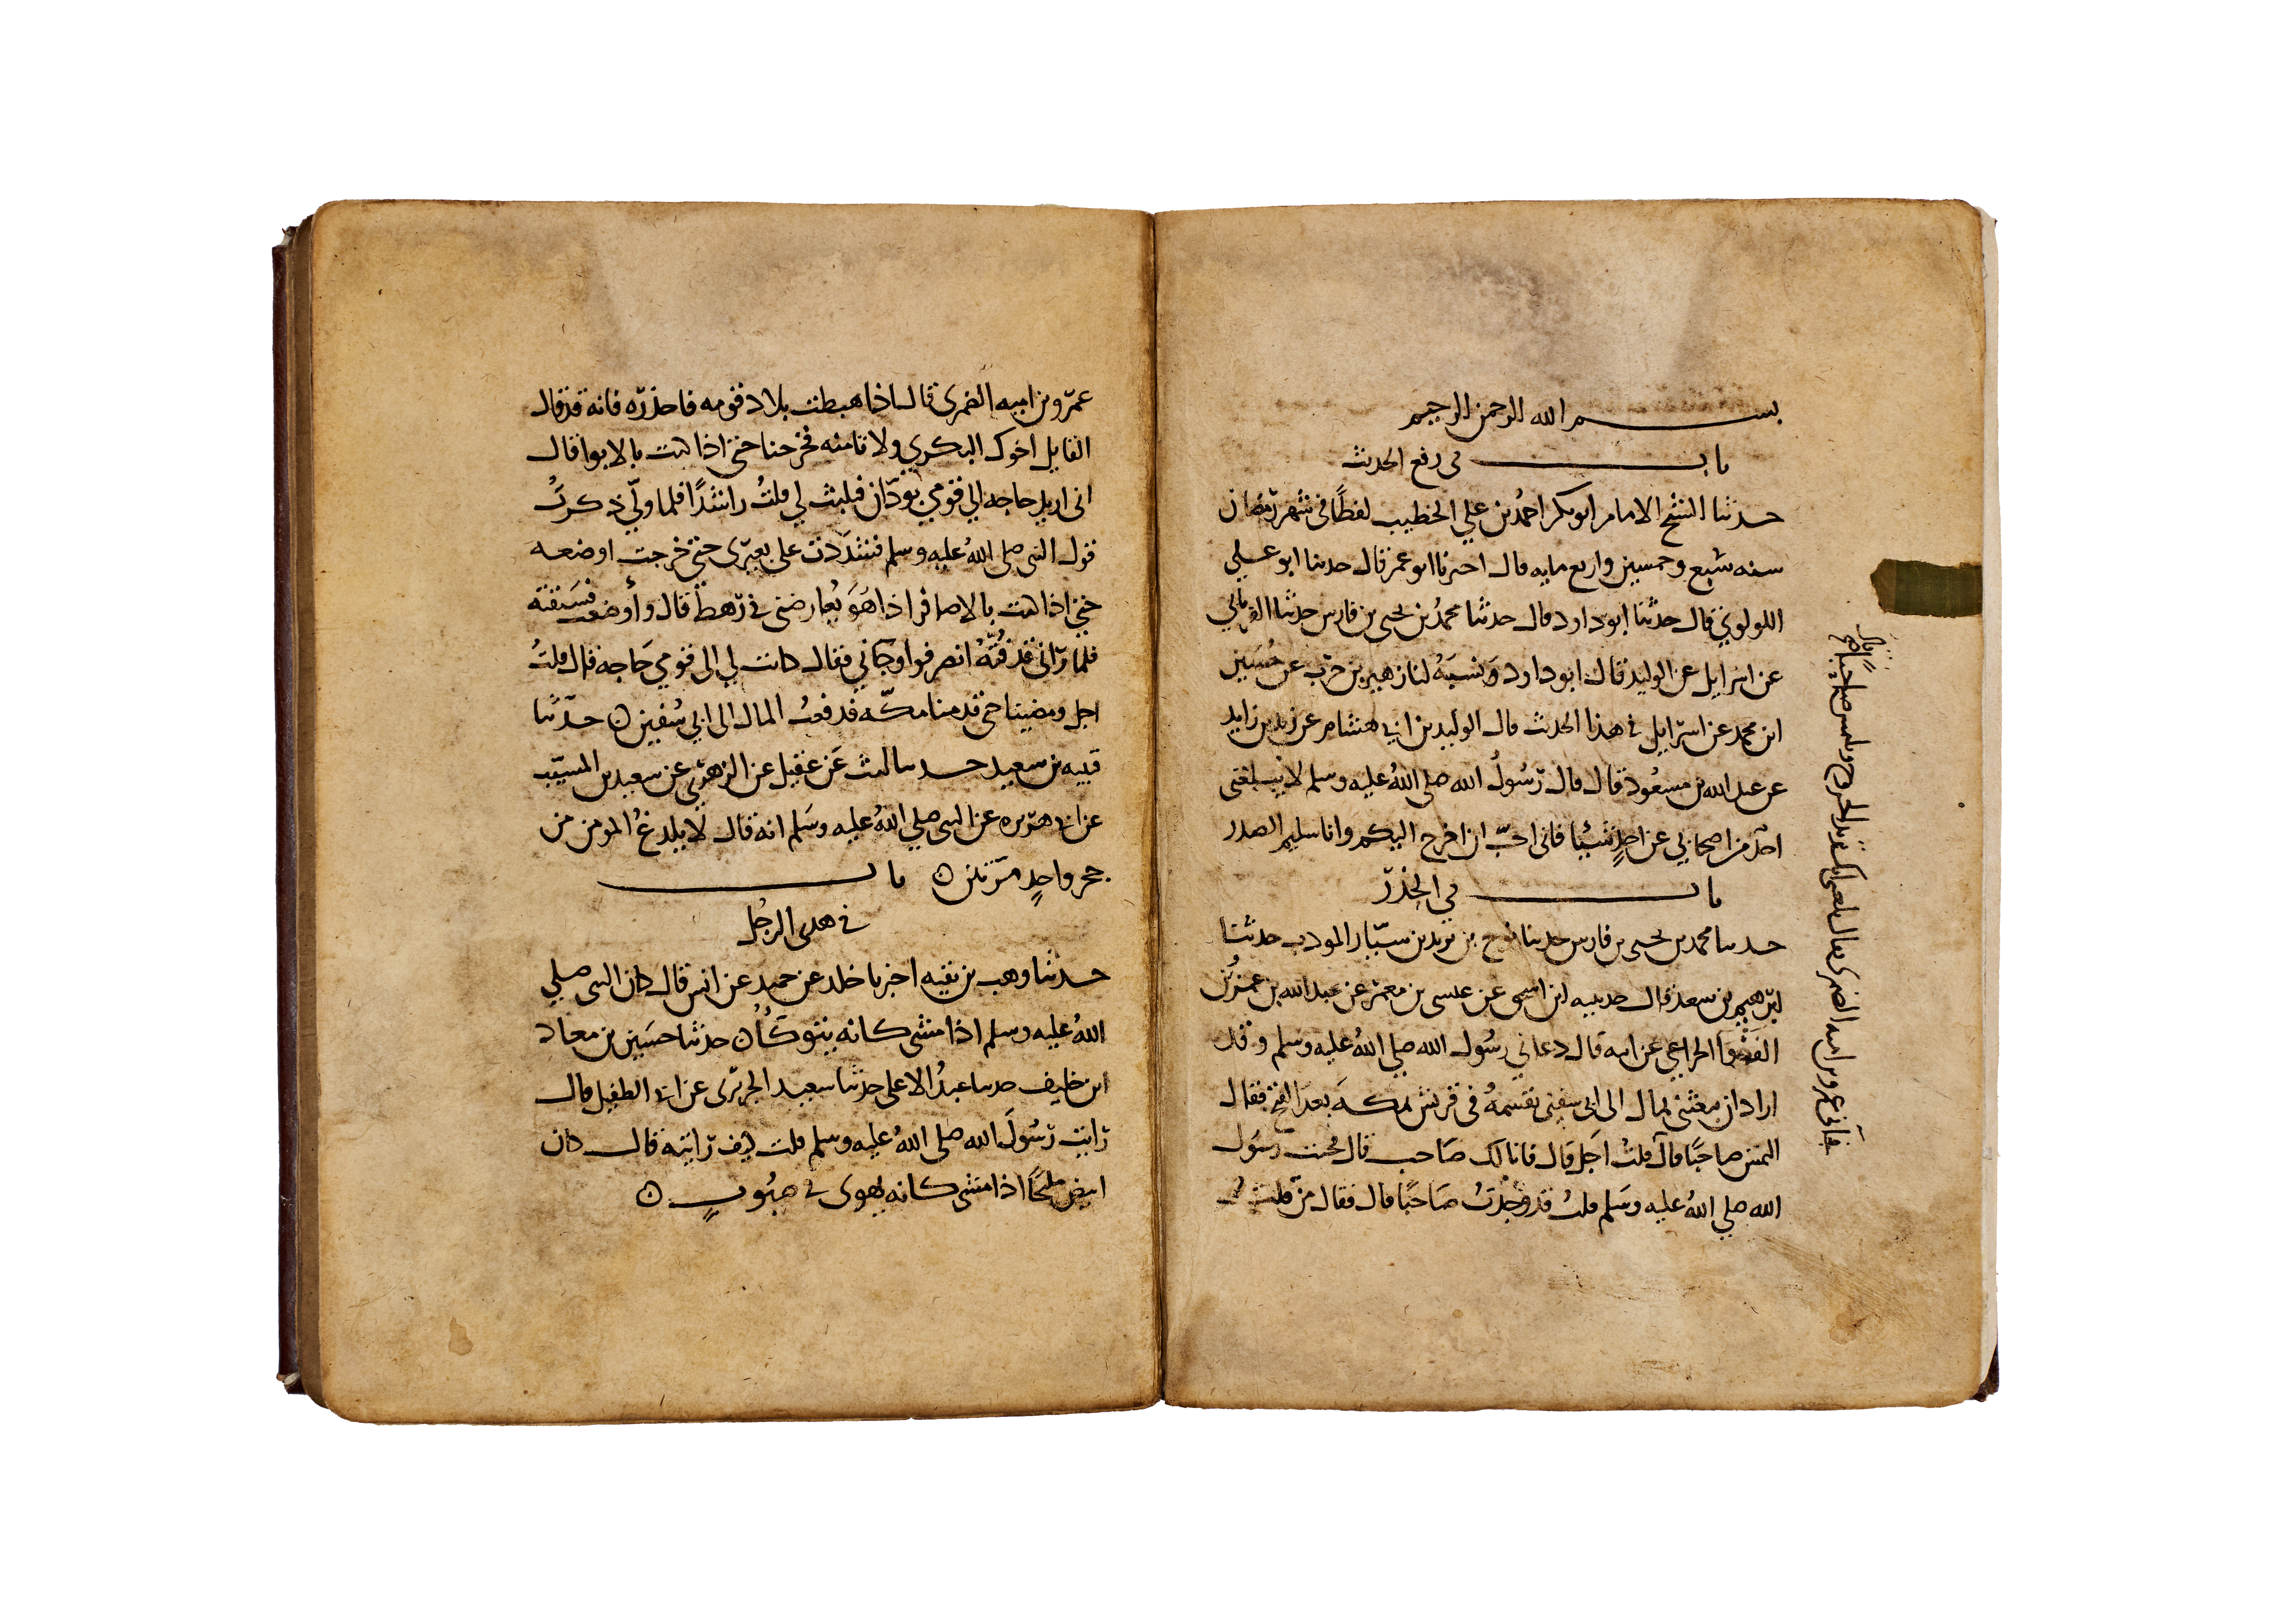 بسم الله الرحمن الرحيم
باب في رفع الحديث
حدثنا الشيخ الامام ابو بكر احمد بن علي الخطيب لفظا في شهر رمضان
سنه سبع وخمسين واربع مايه قال اخبرنا ابو عمر قال حدثنا ابو علي
اللولوي قال حدثنا ابو داود قال حدثنا محمد بن يحيى بن فارس حدثنا الفريابي
عن اسرايل عن الوليد قال ابو داود ونسبه لنا زهير بن حرب عن حسين
ابن محمد عن اسرايل في هذا الحديث قال الوليد بن ابي هشام عن زيد بن زايد
عن عبد الله بن مسعود قال قال رسول الله صلى الله عليه وسلم لا يبلغني
احد من اصحابي عن احد شيئا فاني احب ان اخرج اليكم وانا سليم الصدر
باب في الحذر
حدثنا محمد بن يحيى بن فارس حدثنا نوح بن يزيد بن سيار المودب حدثنا
ابرهيم بن سعد قال حدثنيه ابن اسحق عن عيسى بن معمر عن عبد الله بن عمرو بن
الفغوا الخزاعي عن ابيه قال دعاني رسول الله صلي الله عليه وسلم وقد
اراد ان يبعثني بمال الى ابي سفين نقسمه في قريش بمكه بعد الفتح فقال
التمس صاحبا قال
فجاني عمرو بن اميه الضمرى فقال بلغني انك تريد الخروج وتلتمس صاحبا قال
قلت اجل قال فانا لك صاحب قال فجئت رسول
الله صلي الله عليه وسلم قلت قد وجدت صاحبا قال فقال من قلت
عمرو بن اميه الضمري قال اذا هبطت بلاد قومه فاحذره فانه قد قال
القايل اخوك البكري ولا تامنه فخرجنا حتى اذا كنت بالابوا قال
اني اريد حاجه الي قومي بودان فتلبث لي قلت راشدا فلما ولي ذكرت
قول النبي صلى الله عليه وسلم فشددت على بعيرى حتى خرجت اوضعه
حتى اذا كنت بالاصافر اذا هو يعارضني في رهط قال وأوضعت فسبقته
فلما راني قد فته انصرفوا وجاني فقال كانت لي الى قومي حاجه قال قلت
اجل ومضينا حتى قدمنا مكه فدفعت المال الى ابي سفين ۝ حدثنا
قتيبه بن سعيد حدثنا ليث عن عقيل عن الزهري عن سعيد بن المسيب
عن ابي هريره عن النبي صلي الله عليه وسلم انه قال لا يلدغ المومن من
جحر واحد مرتين ۝ باب
في هدى الرجل
حدثنا وهب بن بقيه اخبرنا خلد عن حميد عن انس قال كان النبي صلي
الله عليه وسلم اذا مشى كانه يتوكأ ۝ حدثنا حسين بن معاد
ابن خليف حدثنا عبد الاعلى حدثنا سعيد الجريرى عن ابي الطفيل قال
رايت رسول الله صلى الله عليه وسلم قلت كيف رايته قال كان
ابيض مليحا اذا مشى كانه يهوى في صبوب ۝